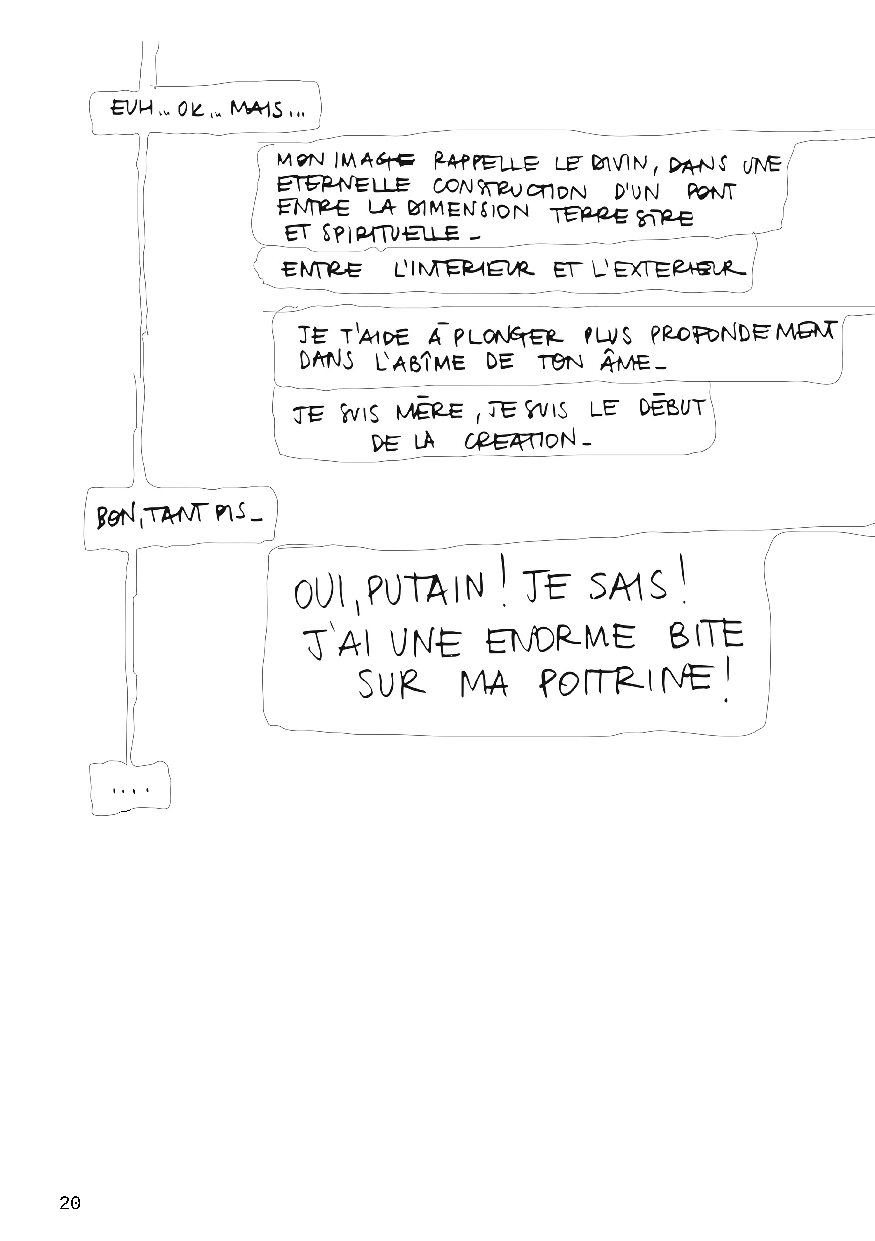 EUH... OK... MAIS...
MON IMAGE RAPPELLE LE DIVIN, DANS UNE
ETERNELLE CONSTRUCTION D'UN PONT
ENTRE LA DIMENSION TERRESTRE
ET SPIRITUELLE _
ENTRE L'INTERIEUR ET L'EXTERIEUR
JE T'AIDE À PLONGER PLUS PROFONDEMENT
DANS L'ABÎME DE TON ÂME _
JE SUIS MÈRE, JE SUIS LE DÉBUT
DE LA CREATION _
BON, TANT PIS _
OUI, PUTAIN! JE SAIS!
J'AI UNE ENORME BITE
SUR MA POITRINE!
....
20